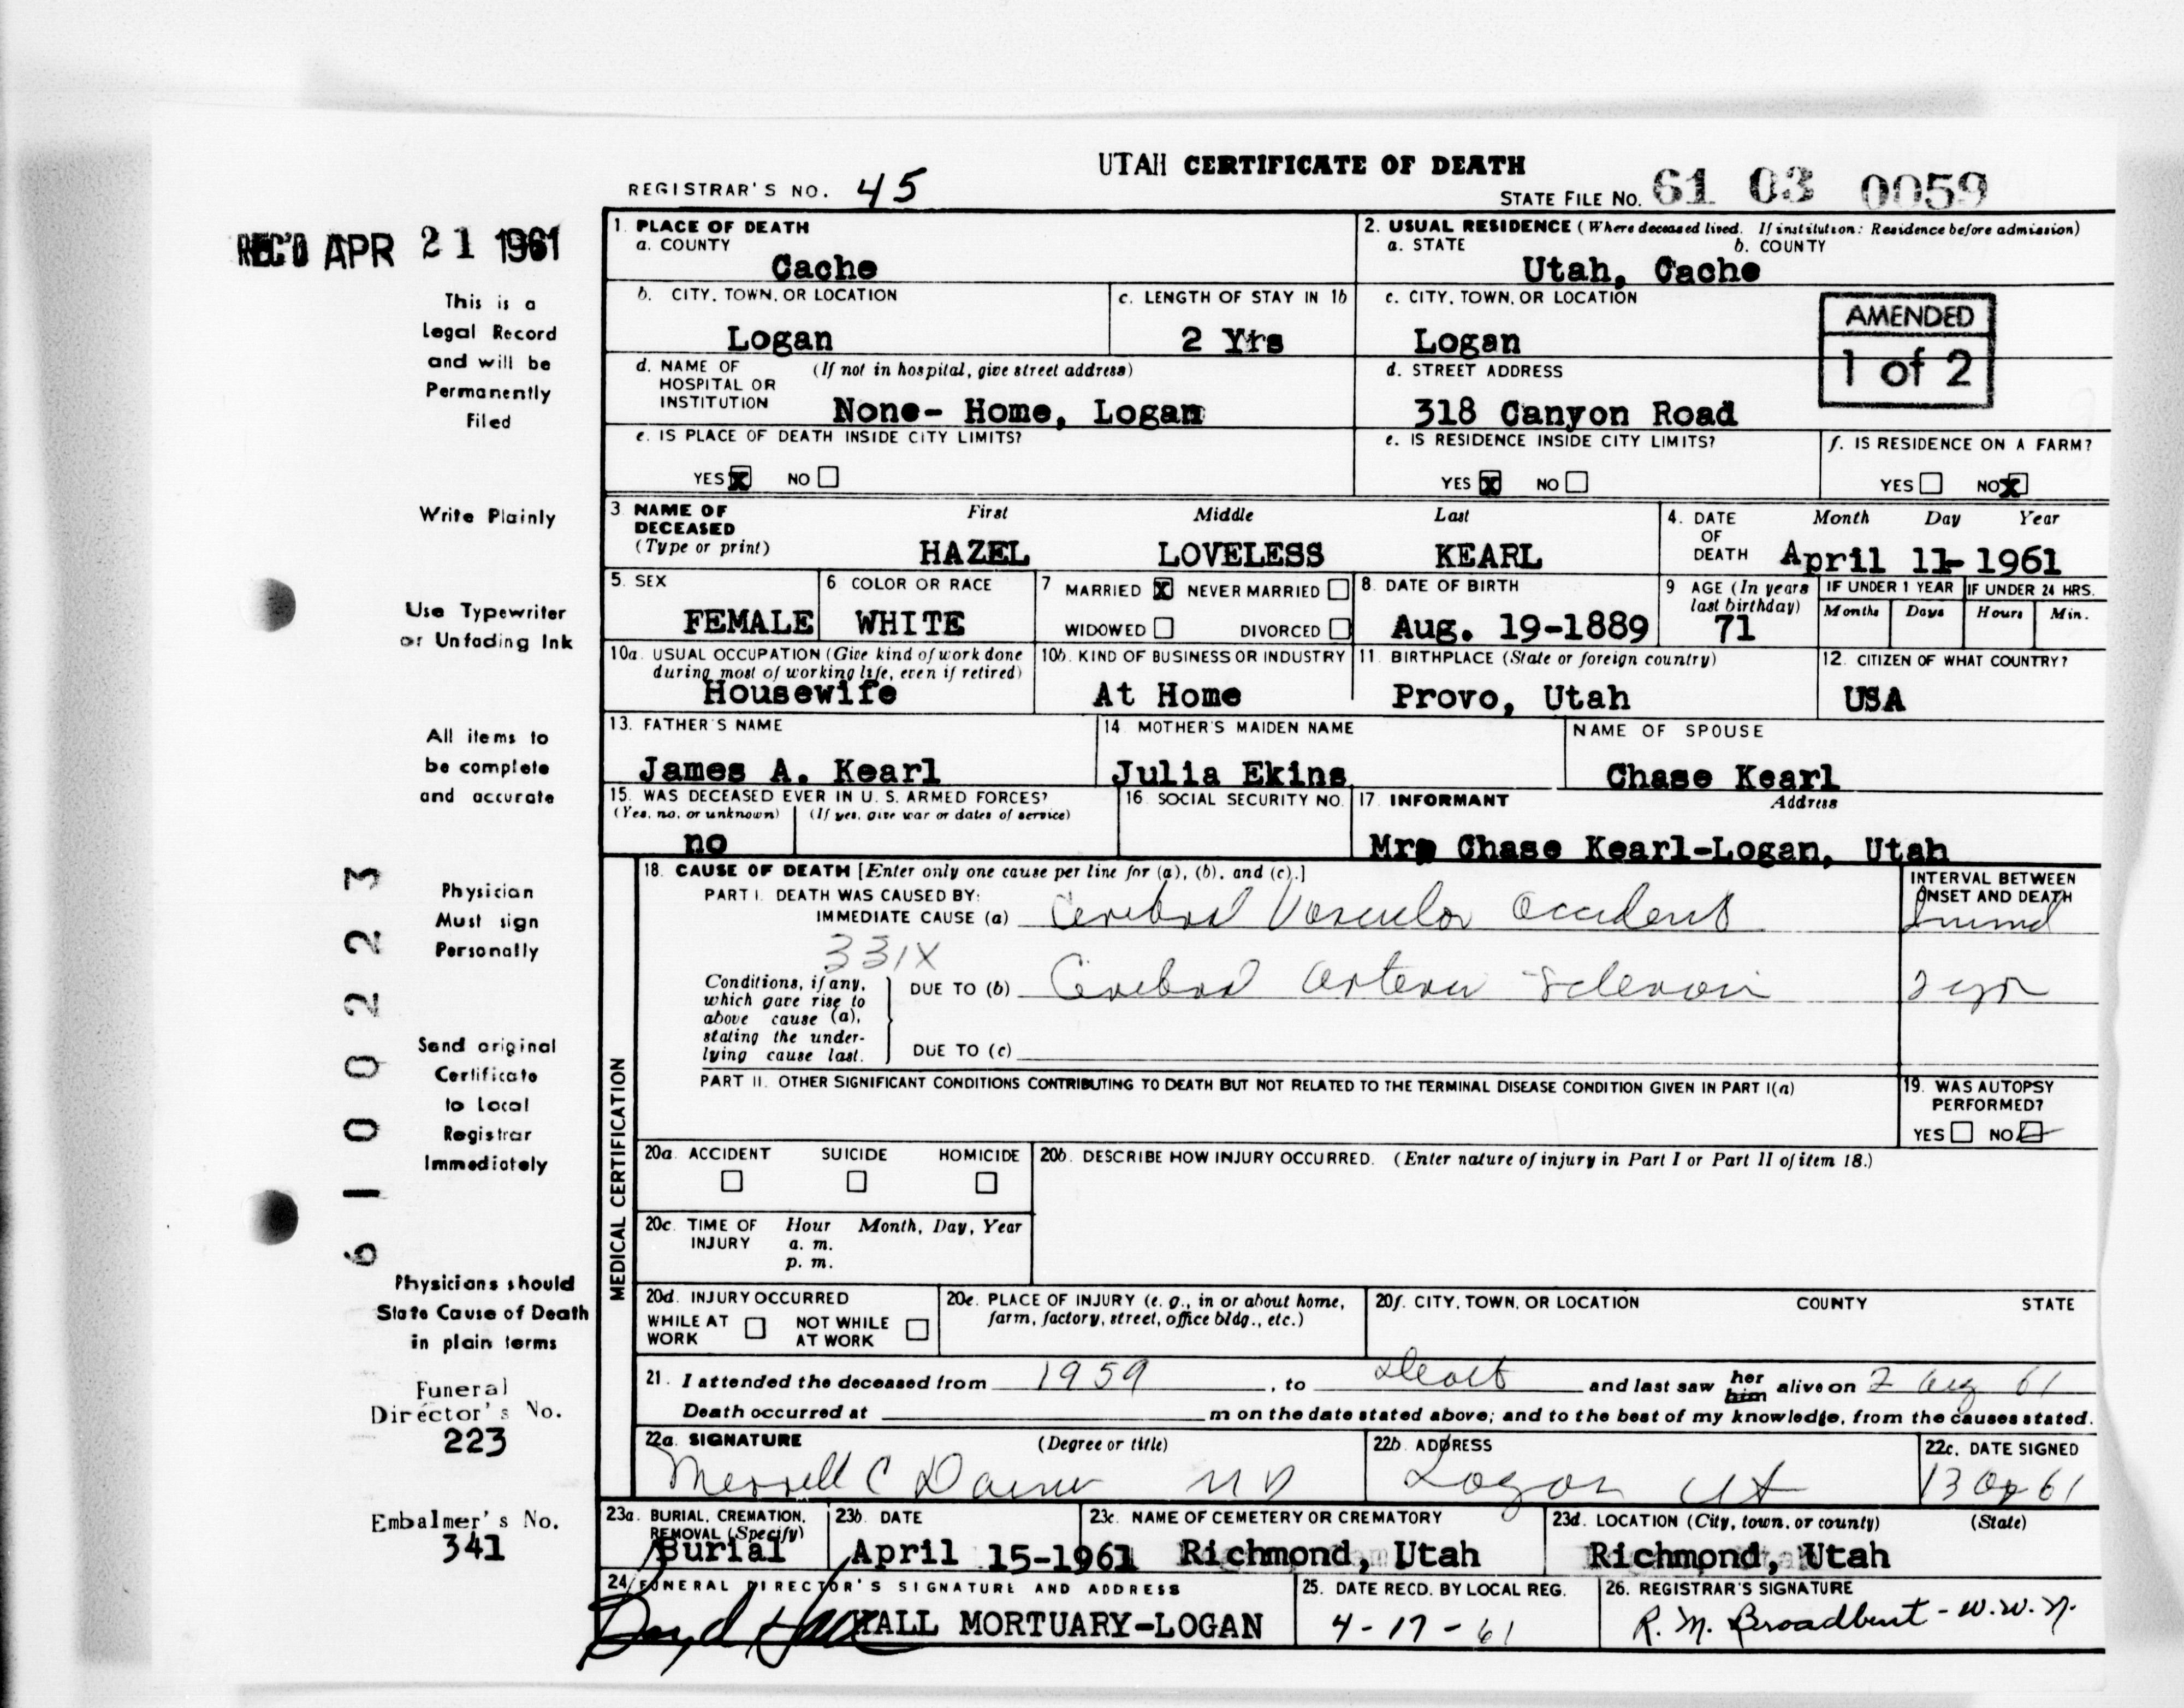 UTAH CERTIFICATE OF DEATH
REGISTRAR'S NO. 45
STATE FILE NO. 61 03 0059
REC'D APR 21 1961
This is a
Legal Record
and will be
Permanently
Filed
Write Plainly
Use Typewriter
or Unfading Ink
All items to
be complete
and accurate
Physician
Must sign
Personally
Send original
Certificate
to Local
Registrar
Immediately
Physicians should
State Cause of Death
in plain terms
Funeral
Director's No.
223
Embalmer's No.
341
61 00223
1. PLACE OF DEATH
a. COUNTY
Cache
2. USUAL RESIDENCE (Where deceased lived. If institution: Residence before admission)
a. STATE b. COUNTY
Utah, Cache
b. CITY, TOWN, OR LOCATION
Logan
c. LENGTH OF STAY IN 1b
2 Yrs
c. CITY, TOWN, OR LOCATION
Logan
AMENDED
1 of 2
d. NAME OF HOSPITAL OR INSTITUTION (If not in hospital, give street address)
None- Home, Logan
d. STREET ADDRESS
318 Canyon Road
e. IS PLACE OF DEATH INSIDE CITY LIMITS?
YES X NO
e. IS RESIDENCE INSIDE CITY LIMITS?
YES X NO
f. IS RESIDENCE ON A FARM?
YES NO X
3 NAME OF DECEASED (Type or print)
First Middle Last
HAZEL LOVELESS KEARL
4. DATE OF DEATH Month Day Year
April 11-1961
5. SEX
FEMALE
6 COLOR OR RACE
WHITE
7 MARRIED X NEVER MARRIED
WIDOWED DIVORCED
8. DATE OF BIRTH
Aug. 19-1889
9 AGE (In years last birthday)
71
IF UNDER 1 YEAR IF UNDER 24 HRS.
Months Days Hours Min.
10a. USUAL OCCUPATION (Give kind of work done during most of working life, even if retired)
Housewife
10b. KIND OF BUSINESS OR INDUSTRY
At Home
11. BIRTHPLACE (State or foreign country)
Provo, Utah
12. CITIZEN OF WHAT COUNTRY?
USA
13. FATHER'S NAME
James A. Kearl
14 MOTHER'S MAIDEN NAME
Julia Ekins
NAME OF SPOUSE
Chase Kearl
15. WAS DECEASED EVER IN U. S. ARMED FORCES?
(Yes, no, or unknown) (If yes, give war or dates of service)
no
16. SOCIAL SECURITY NO.
17. INFORMANT Address
Mrs Chase Kearl-Logan, Utah
MEDICAL CERTIFICATION
18. CAUSE OF DEATH [Enter only one cause per line for (a), (b), and (c).]
PART I. DEATH WAS CAUSED BY:
IMMEDIATE CAUSE (a) Cerebral Vascular Accident
INTERVAL BETWEEN ONSET AND DEATH
331X
Conditions, if any, which gave rise to above cause (a), stating the underlying cause last.
DUE TO (b) Cerebral Arterio Sclerosis
2 yr
DUE TO (c)
PART II. OTHER SIGNIFICANT CONDITIONS CONTRIBUTING TO DEATH BUT NOT RELATED TO THE TERMINAL DISEASE CONDITION GIVEN IN PART I(a)
19. WAS AUTOPSY PERFORMED?
YES NO
20a. ACCIDENT SUICIDE HOMICIDE
20b. DESCRIBE HOW INJURY OCCURRED. (Enter nature of injury in Part I or Part II of item 18.)
20c. TIME OF INJURY Hour Month, Day, Year
a. m.
p. m.
20d. INJURY OCCURRED
WHILE AT WORK NOT WHILE AT WORK
20e. PLACE OF INJURY (e. g., in or about home, farm, factory, street, office bldg., etc.)
20f. CITY, TOWN, OR LOCATION COUNTY STATE
21. I attended the deceased from 1959, to Death and last saw her him alive on 2 61
Death occurred at m on the date stated above; and to the best of my knowledge, from the causes stated.
22a. SIGNATURE (Degree or title)
Merrell C Daines MD
22b. ADDRESS
Logan Ut
22c. DATE SIGNED
13 Ap 61
23a. BURIAL, CREMATION, REMOVAL (Specify)
Burial
23b. DATE
April 15-1961
23c. NAME OF CEMETERY OR CREMATORY
Richmond, Utah
23d. LOCATION (City, town, or county) (State)
Richmond, Utah
24. FUNERAL DIRECTOR'S SIGNATURE AND ADDRESS
Boyd Hall HALL MORTUARY-LOGAN
25. DATE RECD. BY LOCAL REG.
4-17-61
26. REGISTRAR'S SIGNATURE
R. M. Broadbent - W.W.N.